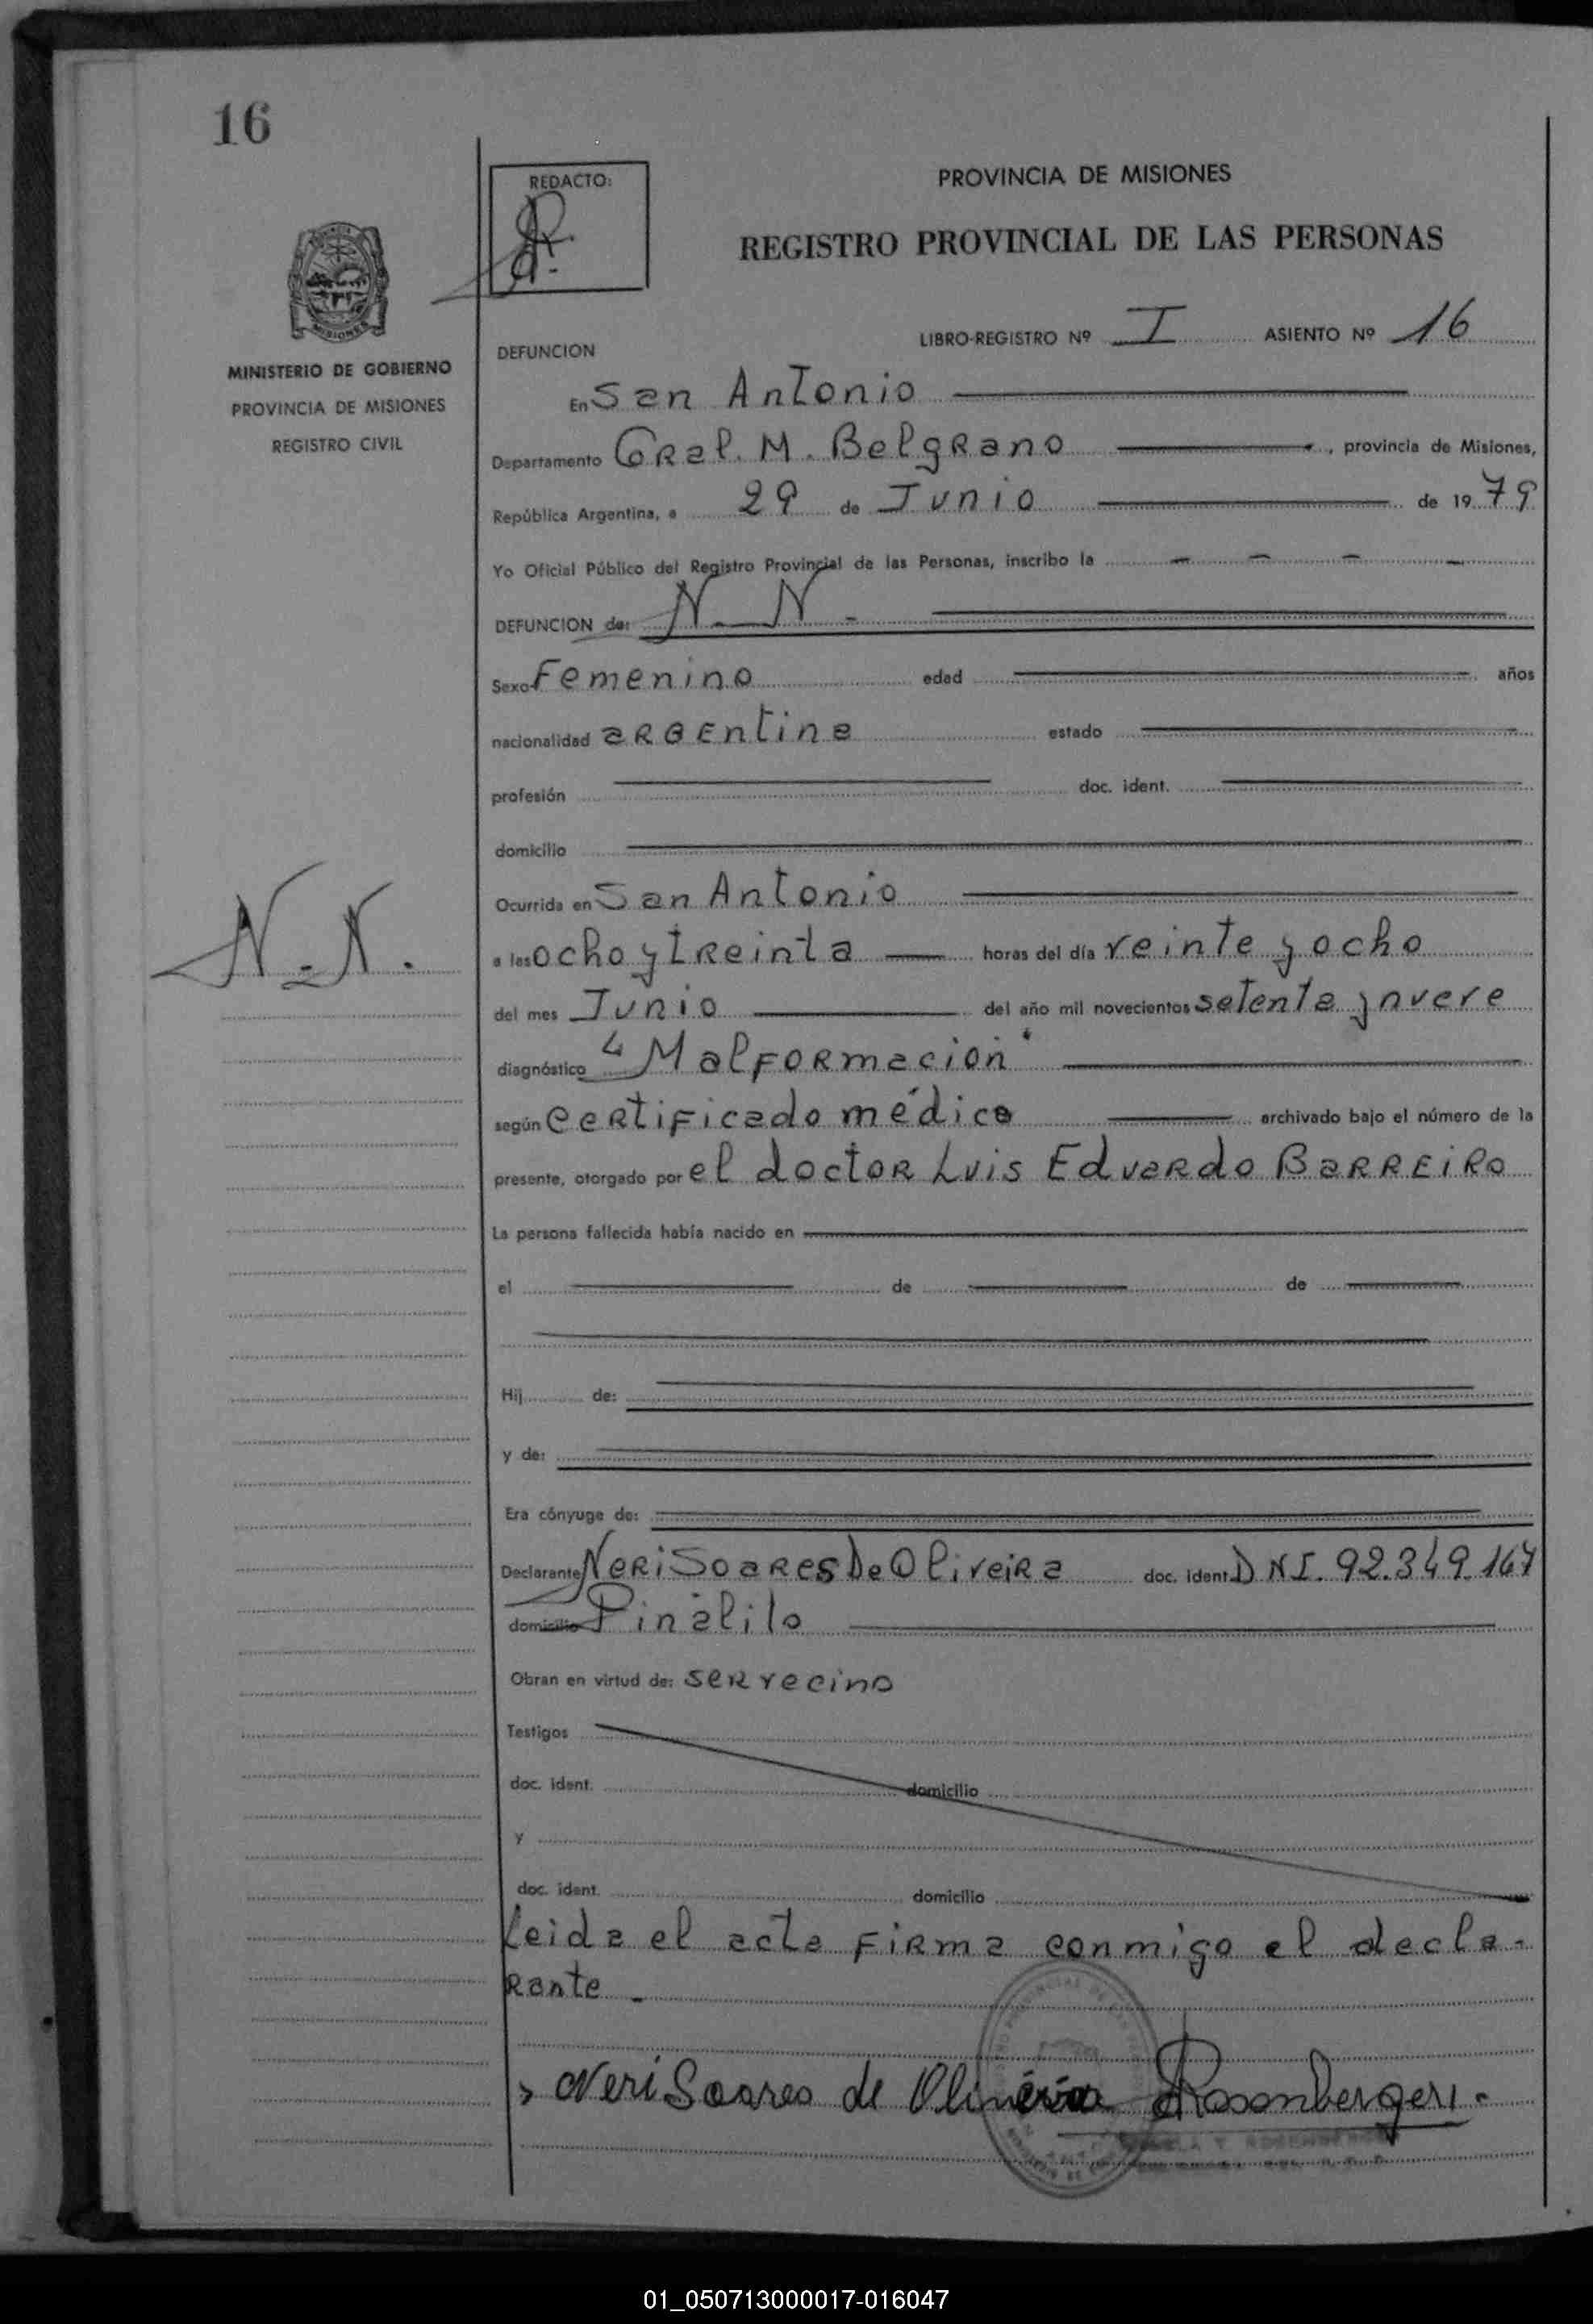 16
REDACTO:
PROVINCIA DE MISIONES
REGISTRO PROVINCIAL DE LAS PERSONAS
MISIONES
MINISTERIO DE GOBIERNO
PROVINCIA DE MISIONES
REGISTRO CIVIL
LIBRO-REGISTRO Nº I ASIENTO Nº 16
DEFUNCION
En San Antonio
Departamento Gral. M. Belgrano, provincia de Misiones,
República Argentina, a 29 de Junio de 1979
Yo Oficial Público del Registro Provincial de las Personas, inscribo la - - - -
DEFUNCION de: N. N. -
Sexo Femenino edad años
nacionalidad argentina estado
profesión doc. ident.
domicilio
Ocurrida en San Antonio
N. N.
a las ocho y treinta horas del día veinte y ocho
del mes Junio del año mil novecientos setenta y nueve
diagnóstico "Malformación"
según certificado médico archivado bajo el número de la
presente, otorgado por el doctor Luis Eduardo Barreiro
La persona fallecida había nacido en
el de de
Hij de:
y de:
Era cónyuge de:
Declarante Neri Soares De Oliveira doc. ident. DNI. 92.349.167
domicilio Pinalito
Obran en virtud de: ser vecino
Testigos
doc. ident. domicilio
y
doc. ident. domicilio
Leida el acta firma conmigo el decla-
rante -
Neri Soares de Oliveira Rosenberger
01_050713000017-016047